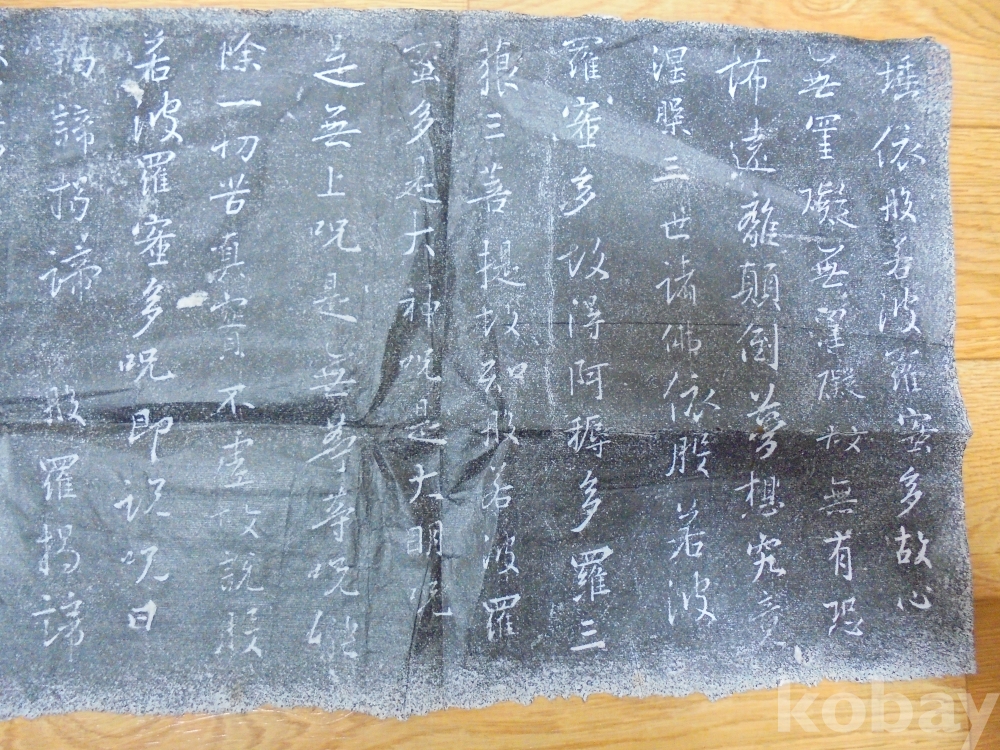 埵依般若波羅蜜多故心
無罣礙無罣礙故無有恐
怖遠離顛倒夢想究竟
涅槃三世諸佛依般若波
羅蜜多故得阿耨多羅三
藐三菩提故知般若波羅
蜜多是大神咒是大明咒
是無上咒是無等等咒能
除一切苦真實不虛故說般
若波羅蜜多咒即說咒曰
揭諦揭諦般羅揭諦
kobay